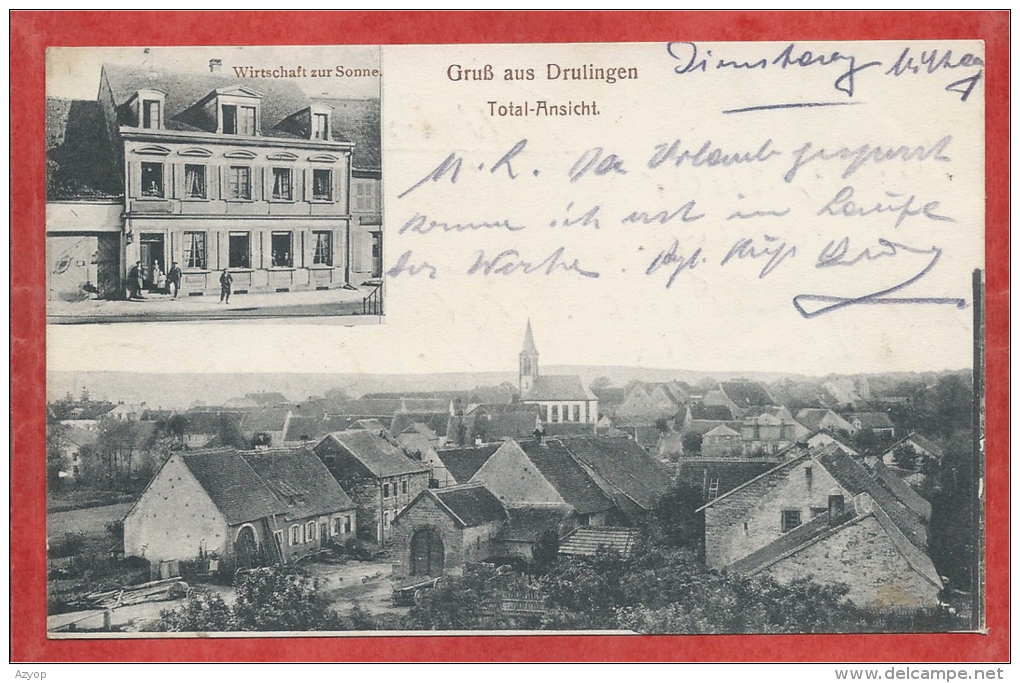 Wirtschaft zur Sonne.
Gruß aus Drulingen
Total-Ansicht.
Dienstag Mittag
M. R. Da Urlaub gesperrt
komme ich erst im Laufe
der Woche. Hzl. Kuß
Azyop
www.delcampe.net